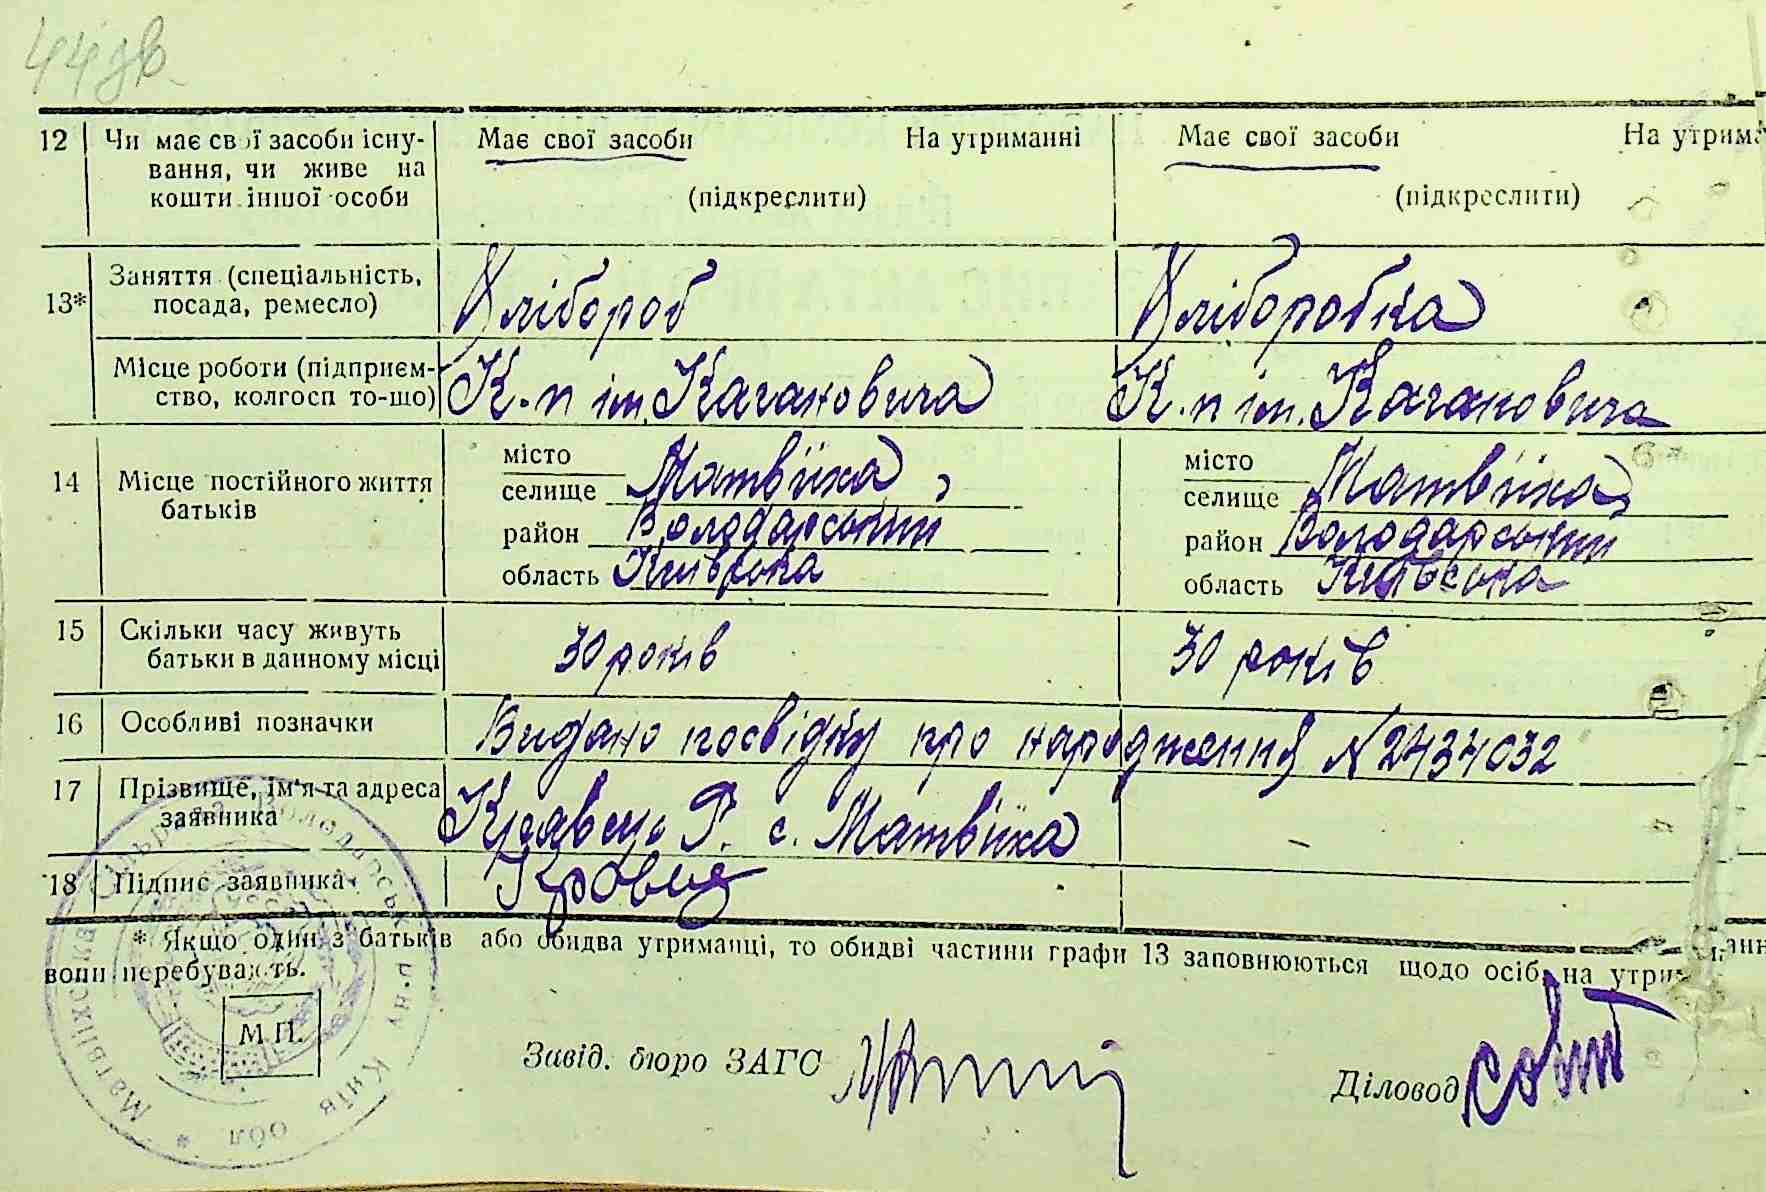 44 зв.
12 Чи має свої засоби існу- Має свої засоби На утриманні Має свої засоби На утрима
вання, чи живе на
кошти іншої особи (підкреслити) (підкреслити)
13* Заняття (спеціальність, Хлібороб Хліборобка
посада, ремесло)
Місце роботи (підприєм- К-п ім. Кагановича К-п ім. Кагановича
ство, колгосп то-що)
14 Місце постійного життя місто Матвіїха, місто Матвіїха
батьків селище селище
район Володарський район Володарський
область Київська область Київська
15 Скільки часу живуть 30 років 30 років
батьки в данному місці
16 Особливі позначки Видано посвідку про народження № 2434032
17 Прізвище, ім'я та адреса Кравець Г. с. Матвіїха
заявника
18 Підпис заявника
* Якщо один з батьків або обидва утриманці, то обидві частини графи 13 заповнюються щодо осіб, на утриманні
вони перебувають.
М.П.
Завід. бюро ЗАГС
Діловод
Сільрада Володарськ. р-ну Київ обл * Матвіїхс